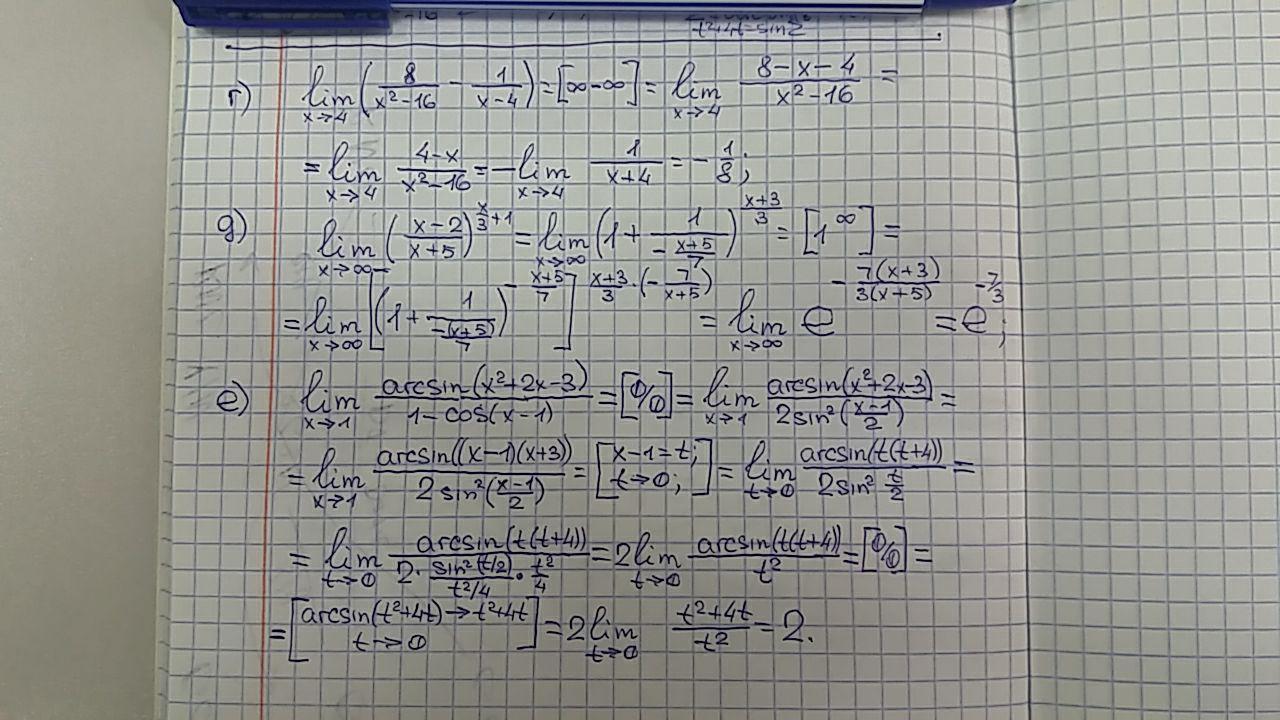 t²+4t=sin2
г) lim x→4 (8/(x²-16) - 1/(x-4)) = [∞-∞] = lim x→4 (8-x-4)/(x²-16) =
= lim x→4 (4-x)/(x²-16) = -lim x→4 1/(x+4) = -1/8;
д) lim x→∞ ((x-2)/(x+5))^(x/3+1) = lim x→∞ (1+1/(-(x+5)/7))^((x+3)/3) = [1^∞] =
= lim x→∞ [(1+1/(-(x+5)/7))^(-(x+5)/7)]^((x+3)/3·(-7/(x+5))) = lim x→∞ e^(-7(x+3)/(3(x+5))) = e^(-7/3);
е) lim x→1 arcsin(x²+2x-3)/(1-cos(x-1)) = [0/0] = lim x→1 arcsin(x²+2x-3)/(2sin²((x-1)/2)) =
= lim x→1 arcsin((x-1)(x+3))/(2sin²((x-1)/2)) = [x-1=t; t→0;] = lim t→0 arcsin(t(t+4))/(2sin² t/2) =
= lim t→0 arcsin(t(t+4))/(2·sin²(t/2)/(t²/4)·t²/4) = 2lim t→0 arcsin(t(t+4))/t² = [0/0] =
= [arcsin(t²+4t)→t²+4t t→0] = 2lim t→0 (t²+4t)/t² = 2.